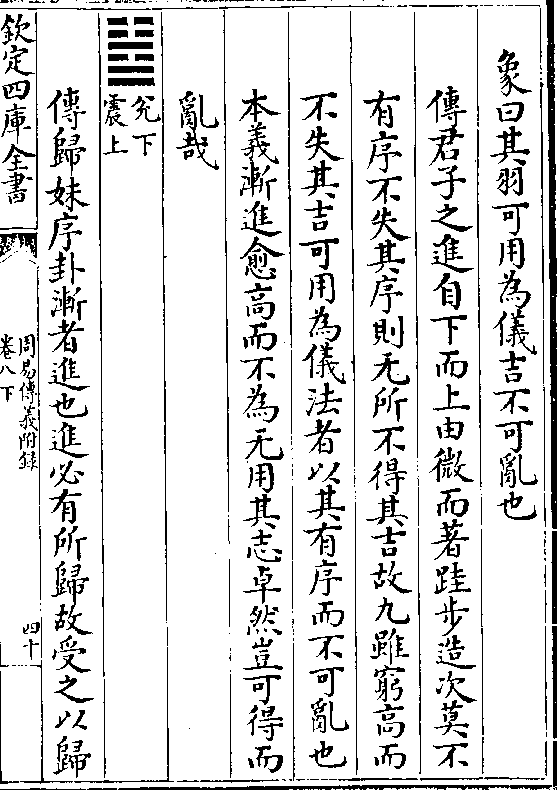 象曰其羽可用為儀吉不可亂也
傳君子之進自下而上由微而著跬步造次莫不
有序不失其序則无所不得其吉故九雖窮高而
不失其吉可用為儀法者以其有序而不可亂也
本義漸進愈高而不為无用其志卓然豈可得而
亂哉
兊下
震上
傳歸妹序卦漸者進也進必有所歸故受之以歸
欽定四庫全書
周易傳義附錄
卷八下
四十